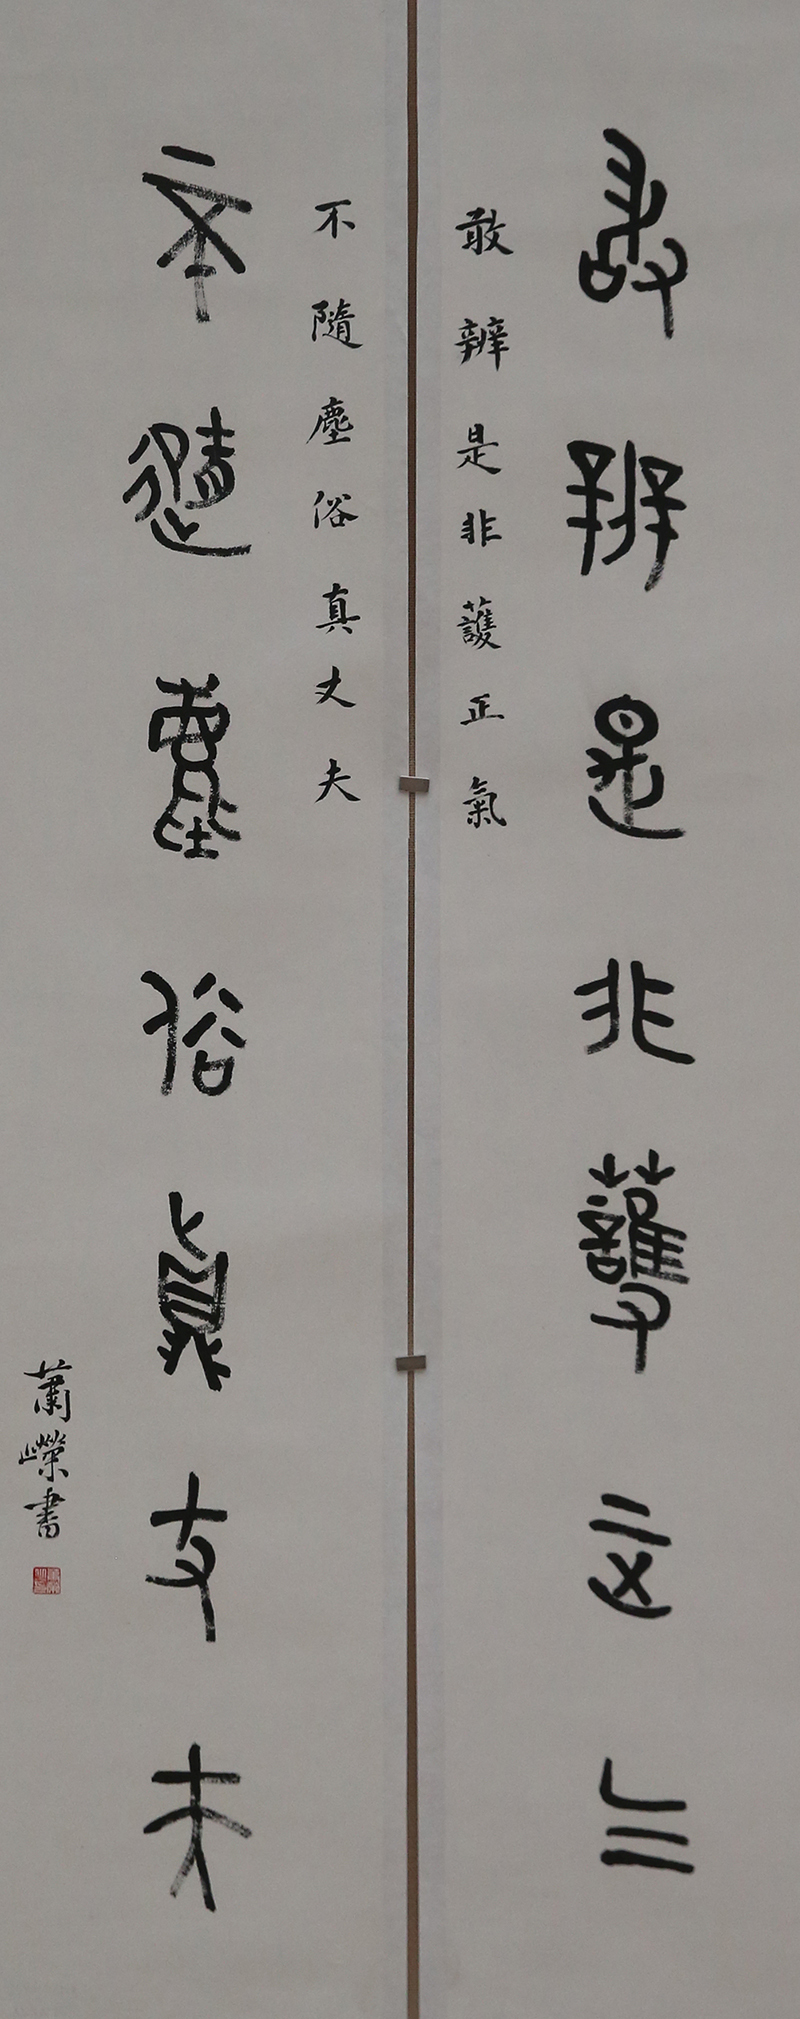 敢辨是非護正氣
敢辨是非蘐正氣
不隨塵俗真丈夫
不隨塵俗真丈夫
蕭嶸書